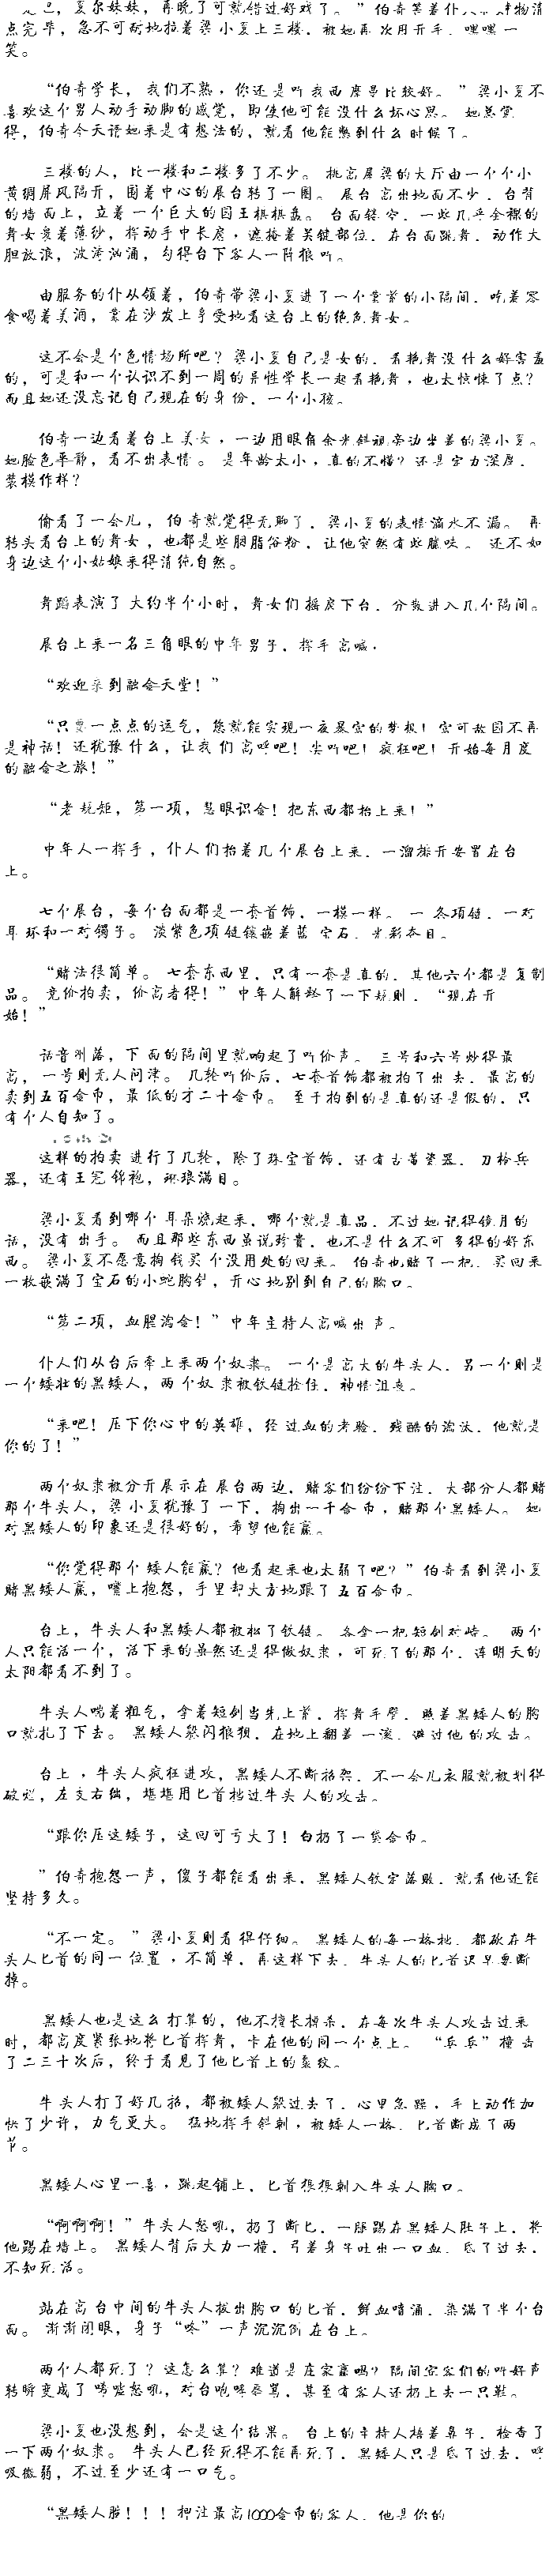 夏尔妹妹，再晚了可就错过好戏了。”伯奇笑着仆人
点完毕，急不可耐地拉着梁小夏上三楼，被她再次甩开手，嘿嘿一
笑。
“伯奇学长，我们不熟，你还是叫我西库曼比较好。”梁小夏不
喜欢这个男人动手动脚的感觉，即使他可能没什么坏心思。她总觉
得，伯奇今天请她来是有想法的，就看他能憋到什么时候了。
三楼的人，比一楼和二楼多了不少。挑高屋梁的大厅由一个个小
黄绸屏风隔开，围着中心的展台转了一圈。展台高出地面不少，台背
的墙面上，立着一个巨大的国王棋棋盘。台面镂空，一些几乎全裸的
舞女裹着薄纱，挥动手中长扇，遮掩着关键部位，在台面跳舞，动作大
胆放浪，波涛汹涌，勾得台下客人一阵狼叫。
由服务的仆从领着，伯奇带梁小夏进了一个紫紫的小隔间，吃着零
食喝着美酒，靠在沙发上享受地看这台上的绝色舞女。
这不会是个色情场所吧？梁小夏自己是女的，看艳舞没什么好害羞
的，可是和一个认识不到一周的异性学长一起看艳舞，也太惊悚了点？
而且她还没忘记自己现在的身份，一个小孩。
伯奇一边看着台上美女，一边用眼角余光斜视旁边坐着的梁小夏。
她脸色平静，看不出表情。是年龄太小，真的不懂？还是定力深厚，
装模作样？
偷看了一会儿，伯奇就觉得无聊了，梁小夏的表情滴水不漏。再
转头看台上的舞女，也都是些胭脂俗粉，让他突然有些腻味。还不如
身边这个小姑娘来得清纯自然。
舞蹈表演了大约半个小时，舞女们摇扇下台，分散进入几个隔间。
展台上来一名三角眼的中年男子，挥手高喊，
“欢迎来到融金天堂！”
“只要一点点的运气，您就能实现一夜暴富的梦想！富可敌国不再
是神话！还犹豫什么，让我们高呼吧！尖叫吧！疯狂吧！开始每月度
的融金之旅！”
“老规矩，第一项，慧眼识金！把东西都抬上来！”
中年人一挥手，仆人们抬着几个展台上来，一溜排开安置在台
上。
七个展台，每个台面都是一套首饰，一模一样。一条项链，一对
耳环和一对镯子。淡紫色项链镶嵌着蓝宝石，光彩夺目。
“赌法很简单。七套东西里，只有一套是真的，其他六个都是复制
品。竞价拍卖，价高者得！”中年人解释了一下规则，“现在开
始！”
话音刚落，下面的隔间里就响起了叫价声。三号和六号炒得最
高，一号则无人问津。几轮叫价后，七套首饰都被拍了出去，最高的
卖到五百金币，最低的才二十金币。至于拍到的是真的还是假的，只
有个人自知了。
这样的拍卖进行了几轮，除了珠宝首饰，还有古董瓷器，刀枪兵
器，还有王冠锦袍，琳琅满目。
梁小夏看到哪个耳朵烧起来，哪个就是真品，不过她记得镜月的
话，没有出手。而且那些东西虽说珍贵，也不是什么不可多得的好东
西。梁小夏不愿意掏钱买个没用处的回来。伯奇也赌了一把，买回来
一枚嵌满了宝石的小蛇胸针，开心地别到自己的胸口。
“第二项，血腥淘金！”中年主持人高喊出声。
仆人们从台后牵上来两个奴隶。一个是高大的牛头人，另一个则是
一个矮壮的黑矮人，两个奴隶被铁链拴住，神情沮丧。
“来吧！压下你心中的英雄，经过血的考验，残酷的淘汰，他就是
你的了！”
两个奴隶被分开展示在展台两边，赌客们纷纷下注，大部分人都赌
那个牛头人，梁小夏犹豫了一下，掏出一千金币，赌那个黑矮人。她
对黑矮人的印象还是很好的，希望他能赢。
“你觉得那个矮人能赢？他看起来也太弱了吧？”伯奇看到梁小夏
赌黑矮人赢，嘴上抱怨，手里却大方地跟了五百金币。
台上，牛头人和黑矮人都被松了铁链，各拿一把短剑对峙。两个
人只能活一个，活下来的虽然还是得做奴隶，可死了的那个，连明天的
太阳都看不到了。
牛头人喘着粗气，拿着短剑当先上前，挥舞手臂，照着黑矮人的胸
口就扎了下去。黑矮人躲闪狼狈，在地上翻着一滚，避过他的攻击。
台上，牛头人疯狂进攻，黑矮人不断招架，不一会儿衣服就被划得
破烂，左支右绌，堪堪用匕首挡过牛头人的攻击。
“跟你压这矮子，这回可亏大了！白扔了一袋金币。
”伯奇抱怨一声，傻子都能看出来，黑矮人铁定落败，就看他还能
坚持多久。
“不一定。”梁小夏则看得仔细。黑矮人的每一格挡，都砍在牛
头人匕首的同一位置，不简单，再这样下去，牛头人的匕首迟早要断
掉。
黑矮人也是这么打算的，他不擅长搏杀，在每次牛头人攻击过来
时，都高度紧张地将匕首挥舞，卡在他的同一个点上。“乒乓”撞击
了二三十次后，终于看见了他匕首上的裂纹。
牛头人打了好几招，都被矮人躲过去了，心里急躁，手上动作加
快了少许，力气更大。猛地挥手斜刺，被矮人一格，匕首断成了两
节。
黑矮人心里一喜，跳起铺上，匕首狠狠刺入牛头人胸口。
“啊啊啊！”牛头人怒吼，扔了断匕，一脚踢在黑矮人肚子上，将
他踢在墙上。黑矮人背后大力一撞，弓着身子吐出一口血，昏了过去，
不知死活。
站在高台中间的牛头人拔出胸口的匕首，鲜血喷涌，染满了半个台
面。渐渐闭眼，身子“咚”一声沉沉倒在台上。
两个人都死了？这怎么算？难道是庄家赢吗？隔间宾客们的叫好声
转瞬变成了唏嘘怒吼，对台咆哮辱骂，甚至有客人还扔上去一只鞋。
梁小夏也没想到，会是这个结果。台上的主持人捂着鼻子，检查了
一下两个奴隶。牛头人已经死得不能再死了，黑矮人只是昏了过去，呼
吸微弱，不过至少还有一口气。
“黑矮人胜！！！押注最高1000金币的客人，他是你的